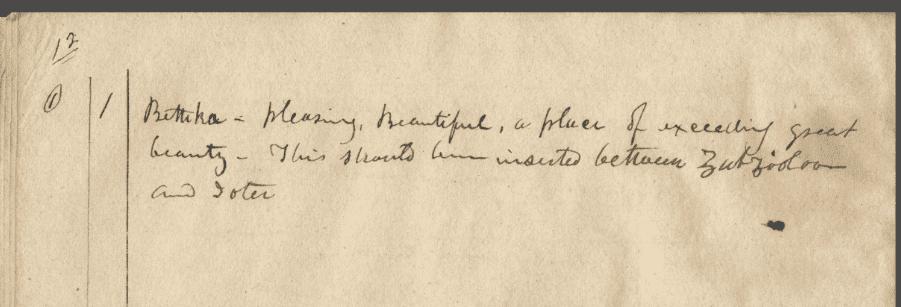 12
① 1 Bethka = pleasing, Beautiful, a place of exceeding great
beauty - This should been inserted between Zubzoolom
and Ioter